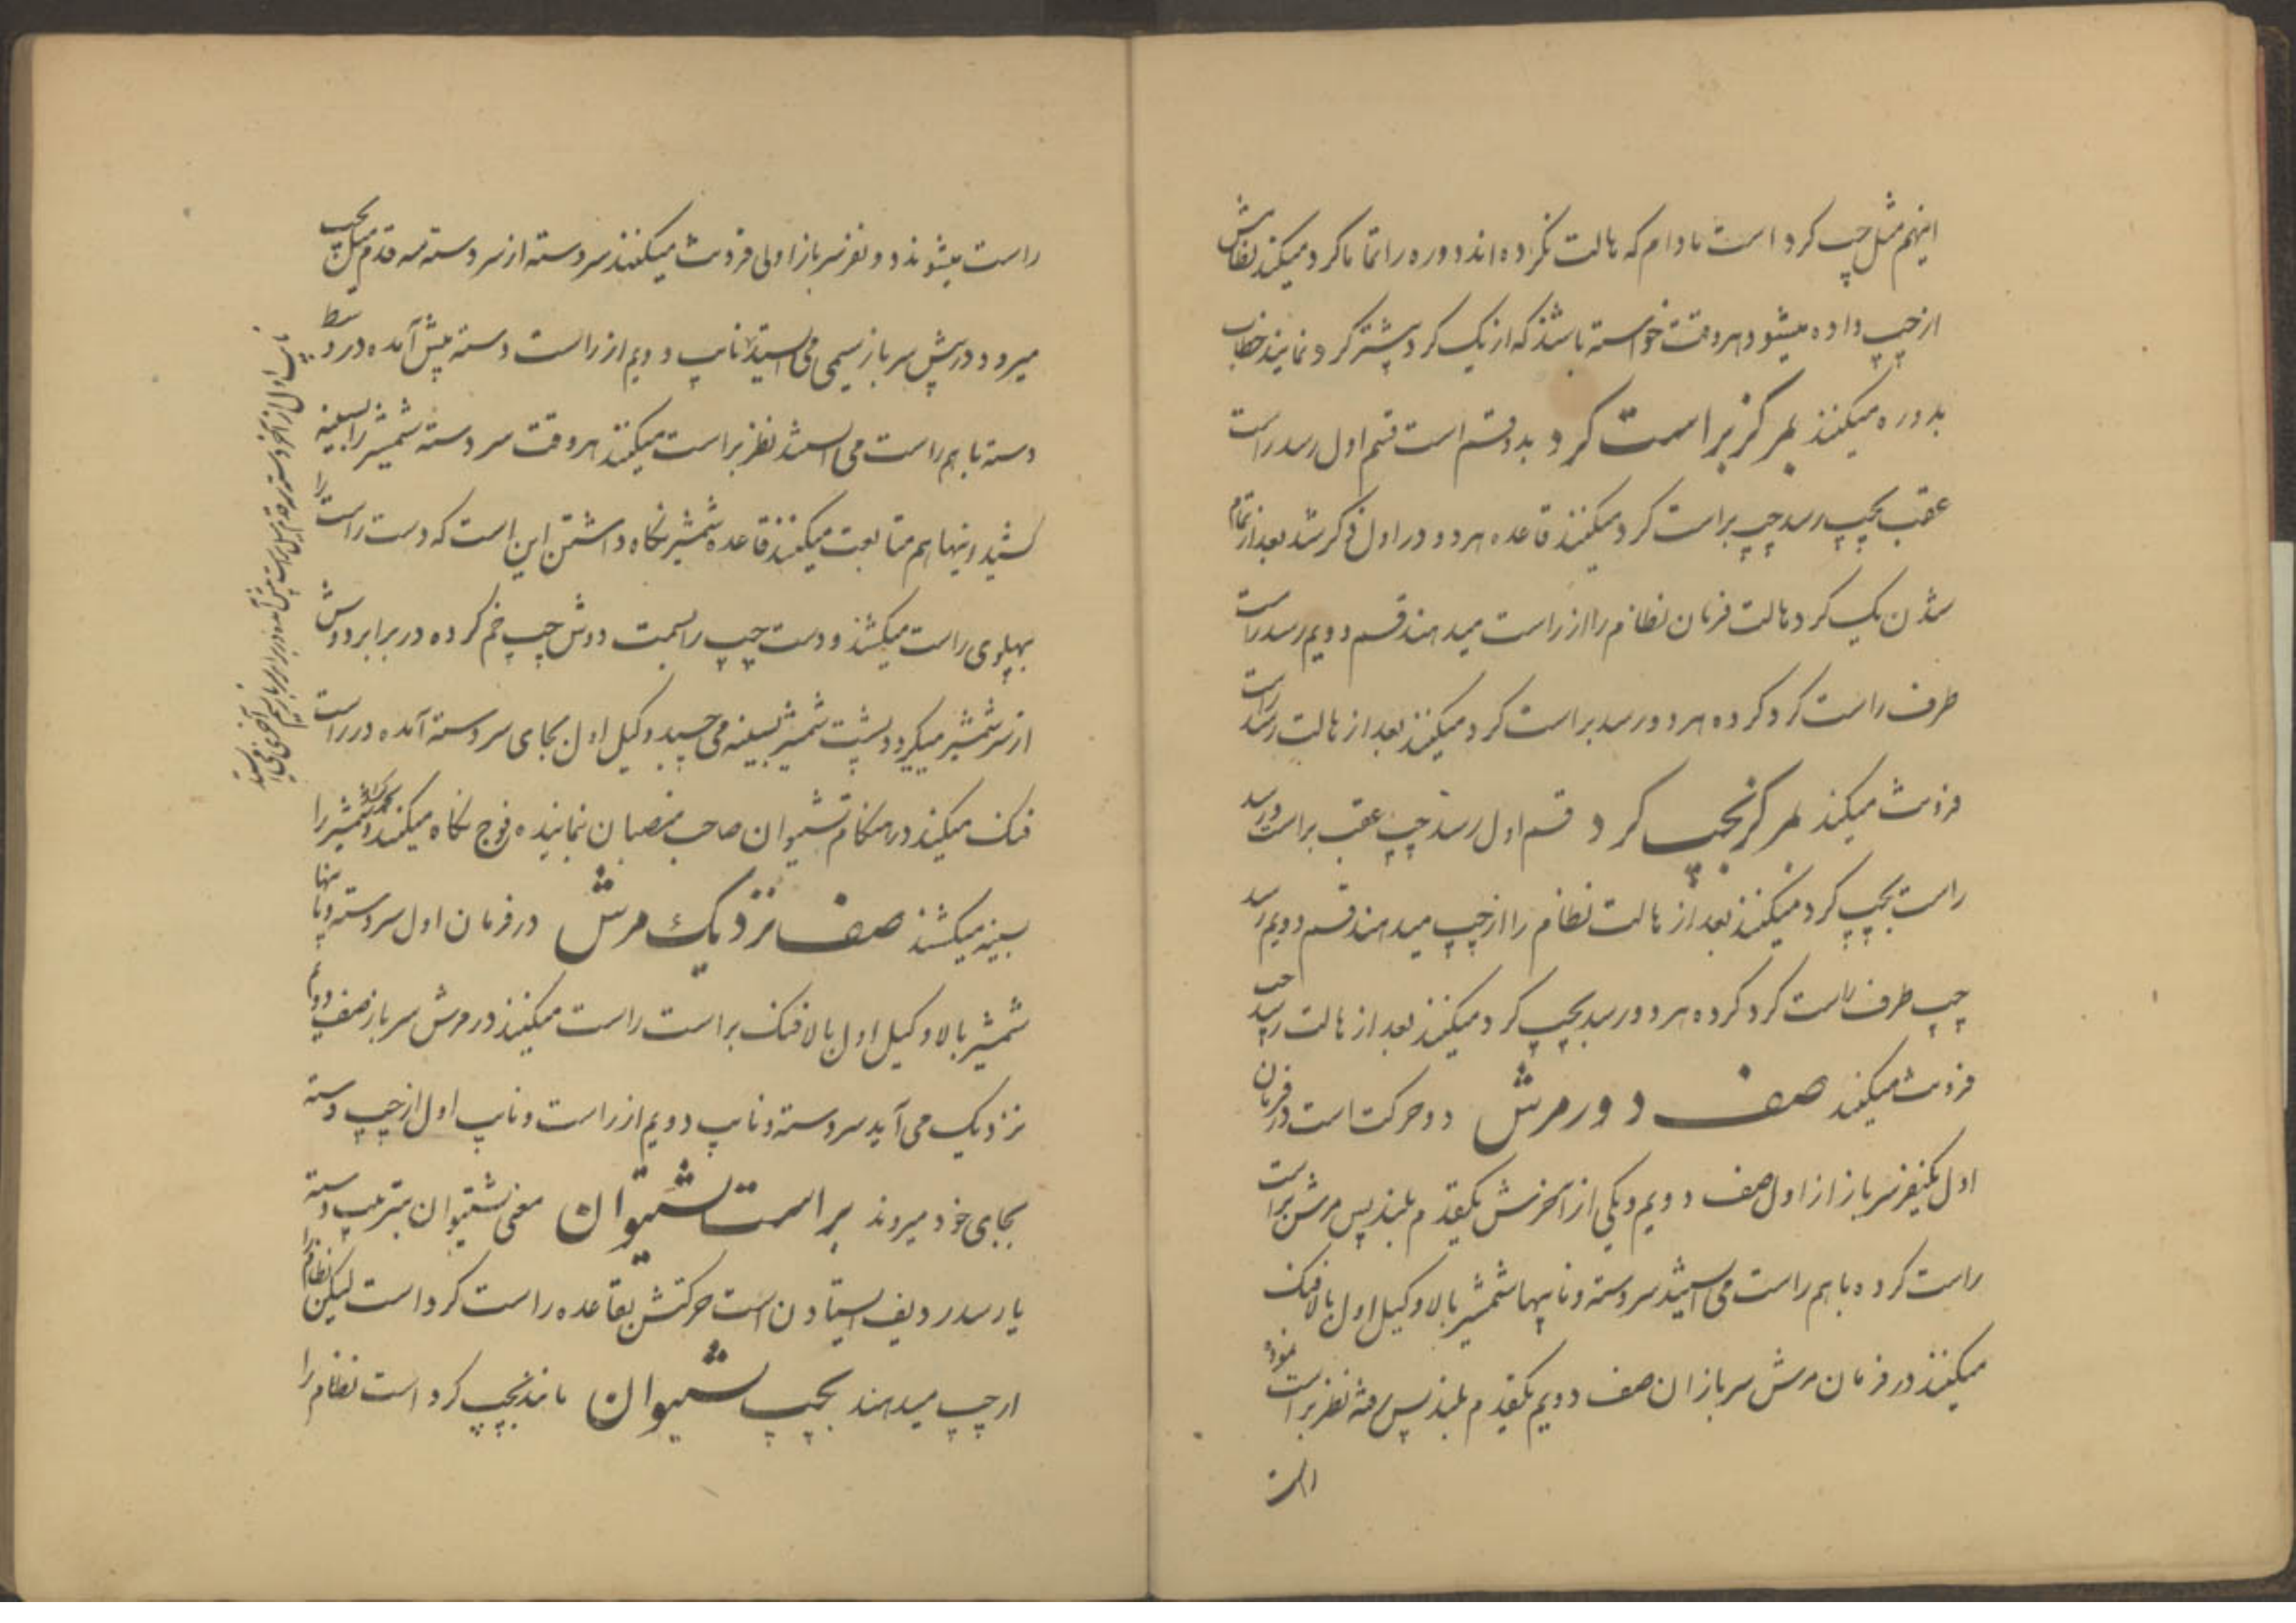 اینهم مثل چپ کرد است مادام که هالت نکرده اند دوره را تماما کرد میکنند نظامش
از چپ داده میشود هر وقت خواسته باشند که از یک کرد پیشتر کرد نمایند خطاب
بدوره میکنند بمرکز براست کرد بدو قسم است قسم اول رسد راست
عقب بچپ رسد چپ براست کرد میکنند قاعده هر دو در اول ذکر شد بعد از تمام
شدن یک کرد هالت فرمان نظام را از راست میدهند قسم دویم رسد راست
طرف راست کرد کرده هر دو رسد براست کرد میکنند بعد از هالت رسد راست
فرونت میکند بمرکز بچپ کرد قسم اول رسد چپ عقب براست و رسد
راست بچپ کرد میکنند بعد از هالت نظام را از چپ میدهند قسم دویم رسد
چپ طرف راست کرد کرده هر دو رسد بچپ کرد میکنند بعد از هالت رسد چپ
فرونت میکند صف دور مرش دو حرکت است در فرمان
اول یکنفر سرباز از اول صف دویم و یکی از آخرش یکقدم بلند پس مرش براست
راست کرده باهم راست می ایستند سردسته و نایبها شمشیر بالا وکیل اول بالا فنک
میکنند در فرمان مرش سربازان صف دویم یکقدم بلند پس رفته نظر براست نموده
راست
راست میشوند دو نفر سرباز اولی فرونت میکنند سردسته از سر دسته سه قدم میل بچپ
میرود در پیش سرباز سیمی می ایستد نایب دویم از راست دسته پیش آمده در وسط
دسته باهم راست می ایستند نظر براست میکنند هر وقت سر دسته شمشیر را بسینه
کشید اینها هم متابعت میکنند قاعده شمشیر نگاه داشتن این است که دست راست را
بپهلوی راست میکشند و دست چپ را بسمت دوش چپ خم کرده در برابر دوش
از سر شمشیر میگیرد و پشت شمشیر بسینه می چسبد وکیل اول بجای سردسته آمده در راست
فنک میکند در هنکام تشیوان صاحب منصبان نماینده فوج نگاه میکنند و شمشیر را
بسینه میکشند صف نزدیک مرش در فرمان اول سردسته و نایبها
شمشیر بالا وکیل اول بالا فنک براست راست میکنند در مرش سرباز صف دویم
نزدیک می آید سردسته و نایب دویم از راست و نایب اول از چپ دسته
بجای خود میروند براست شیوان معنی شیوان بترتیب دسته
یا رسد ردیف ایستادن است حرکتش بقاعده راست کرد است لیکن نظام را
از چپ میدهند بچپ شیوان مانند بچپ کرد است نظام را
نایب اول از آخر دسته سه قدم میل براست پیش آمده در برابر سرباز سیم آخری می ایستد